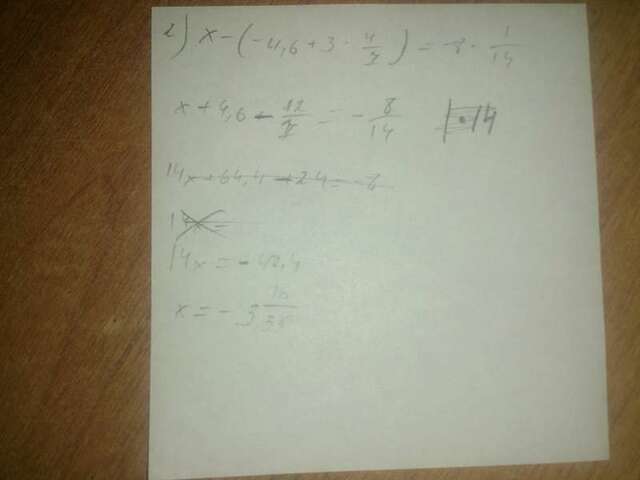 2) x - (-4,6 + 3 · 4/7) = -8 · 1/14
x + 4,6 - 12/7 = - 8/14 | · 14
14x + 64,4 - 24 = -8
14x =
14x = - 48,4
x = - 3